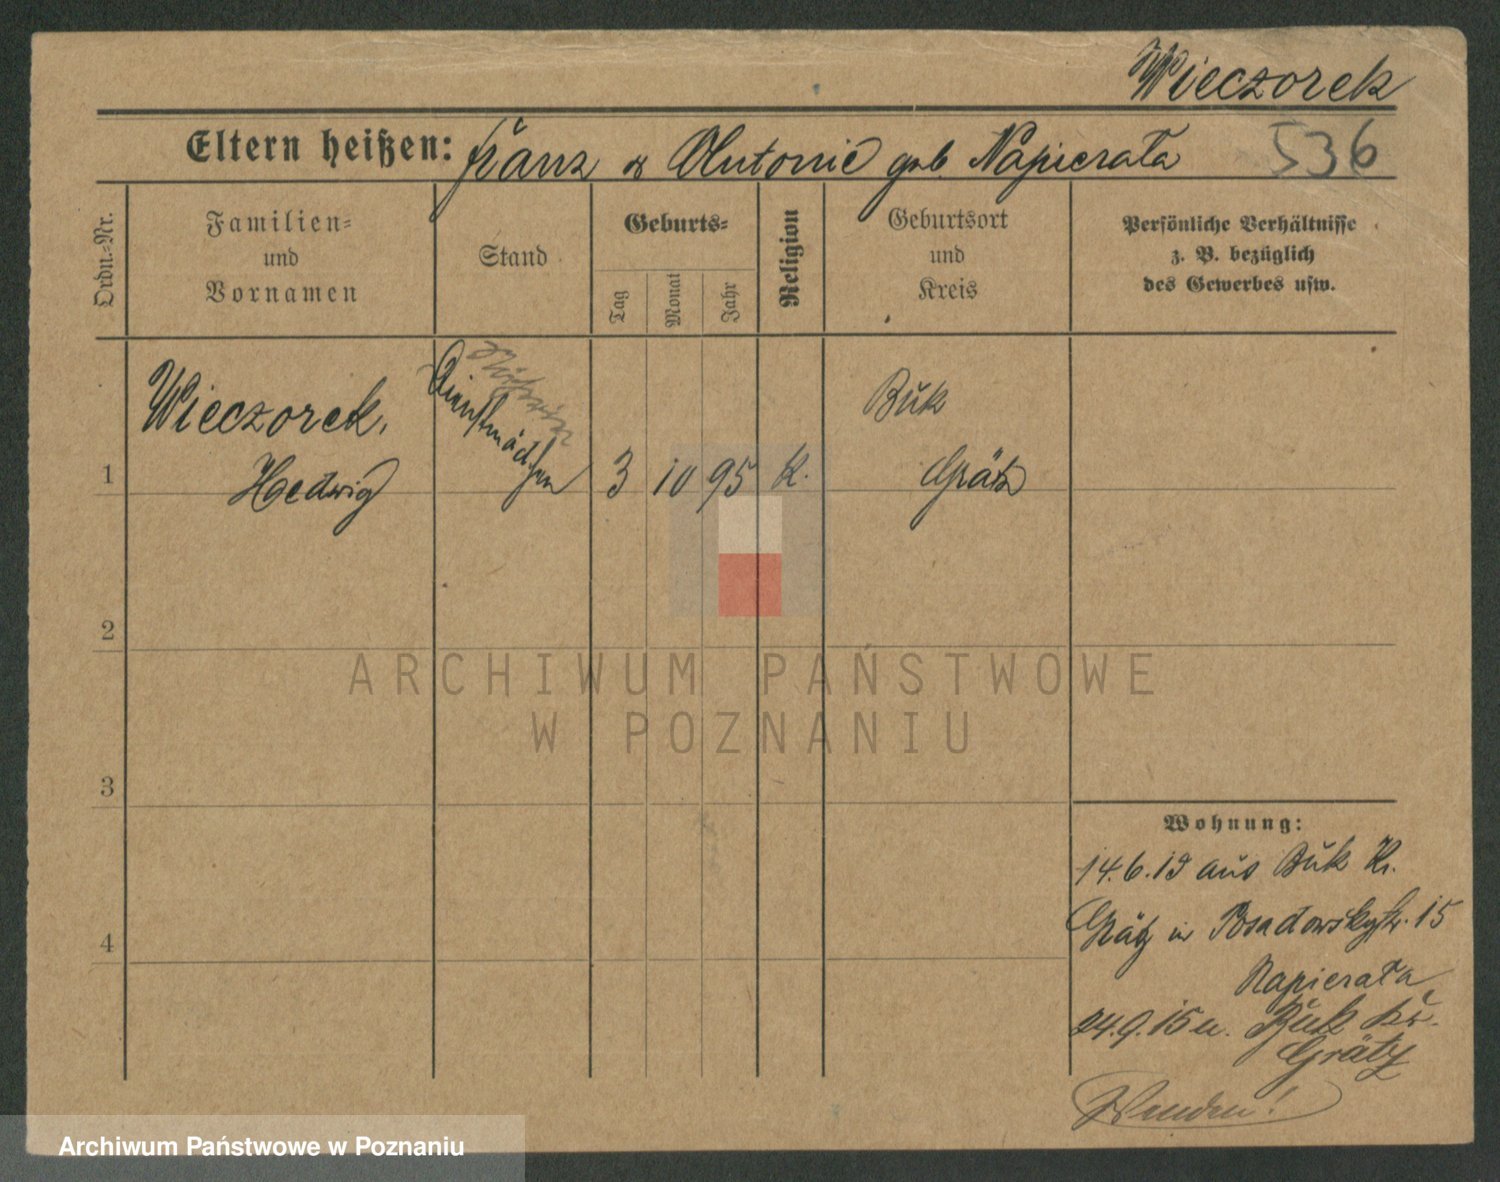 Wieczorek
Eltern heißen: Franz & Antonie geb. Napierała 536
Ordn.-Nr.
Familien- und Vornamen
Stand
Geburts-
Tag
Monat
Jahr
Religion
Geburtsort und Kreis
Persönliche Verhältnisse
z. B. bezüglich
des Gewerbes usw.
1
Wieczorek,
Hedwig
Dienstmädchen
3 10 95 K.
Buk
Grätz
2
3
4
Wohnung:
14.6.13 aus Buk Kr.
Grätz in Posadowskystr. 15
Napierała
24.9.15 n. Buk Kr.
Grätz
Wenden!
ARCHIWUM PAŃSTWOWE
W POZNANIU
Archiwum Państwowe w Poznaniu